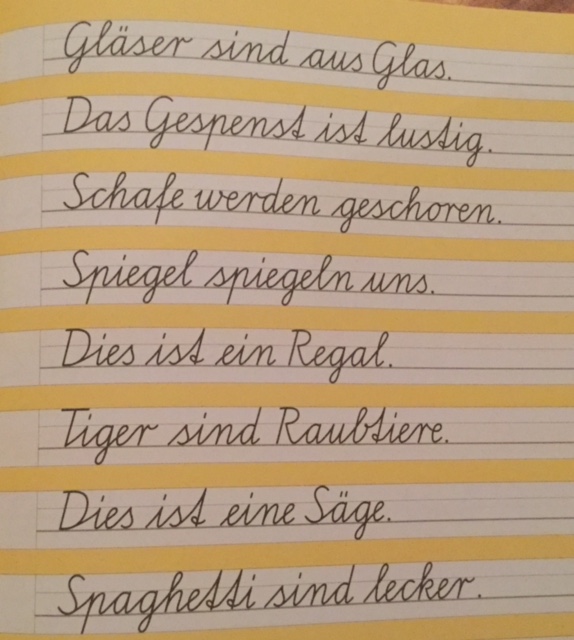 Gläser sind aus Glas.
Das Gespenst ist lustig.
Schafe werden geschoren.
Spiegel spiegeln uns.
Dies ist ein Regal.
Tiger sind Raubtiere.
Dies ist eine Säge.
Spaghetti sind lecker.